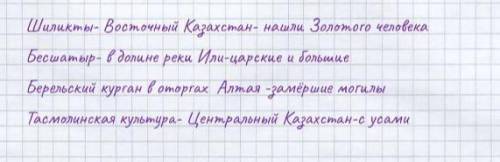 Шиликты- Восточный Казахстан- нашли Золотого человека
Бесшатыр- в долине реки Или-царские и большие
Берельский курган в оторгах Алтая -замёршие могилы
Тасмолинская культура- Центральный Казахстан-с усами